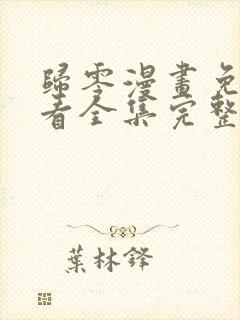 歸零漫畫免
看全集完整
葉林鋒